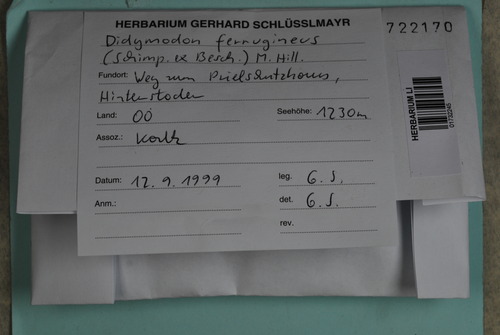 HERBARIUM GERHARD SCHLÜSSLMAYR
Didymodon ferrugineus
(Schimp. ex Besch.) M. Hill.
Fundort: Weg zum Prielschutzhaus,
Hinterstoder
Land: OÖ Seehöhe: 1230m
Assoz.: Kalk
Datum: 12.9.1999 leg. G.S.
Anm.: det. G.S.
rev.
722170
HERBARIUM LI